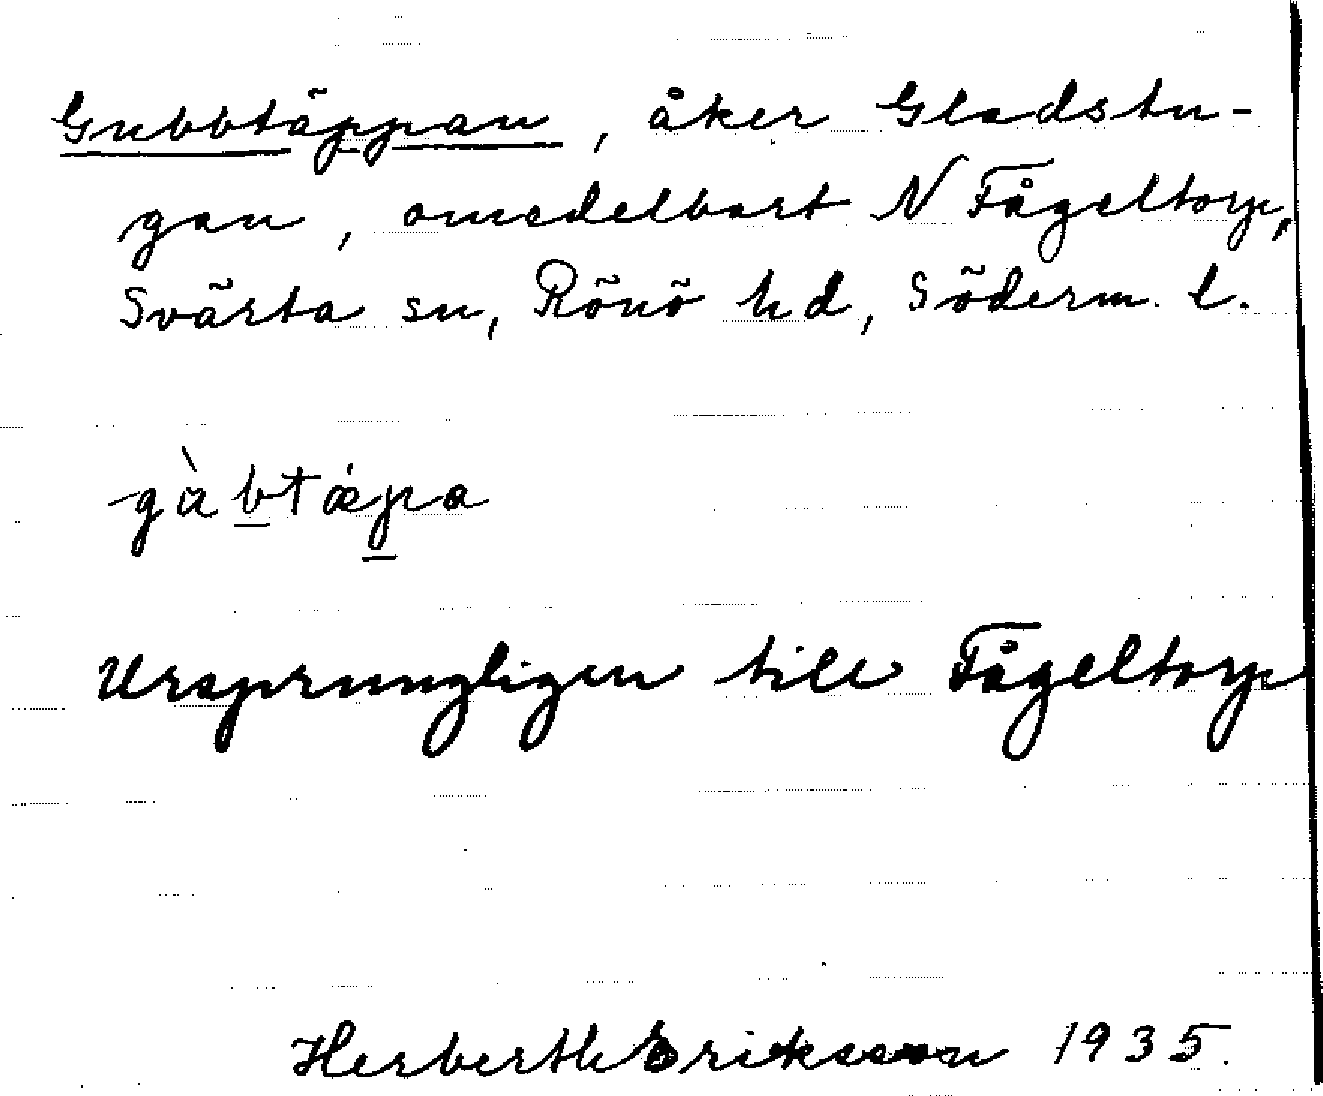 Gubbtäppan, åker Gladstu-
gan, omedelbart N Fågeltorp,
Svärta sn, Rönö hd, Söderm. l.
gàbtǽpa
Ursprungligen till Fågeltorp
Herberth Eriksson 1935.